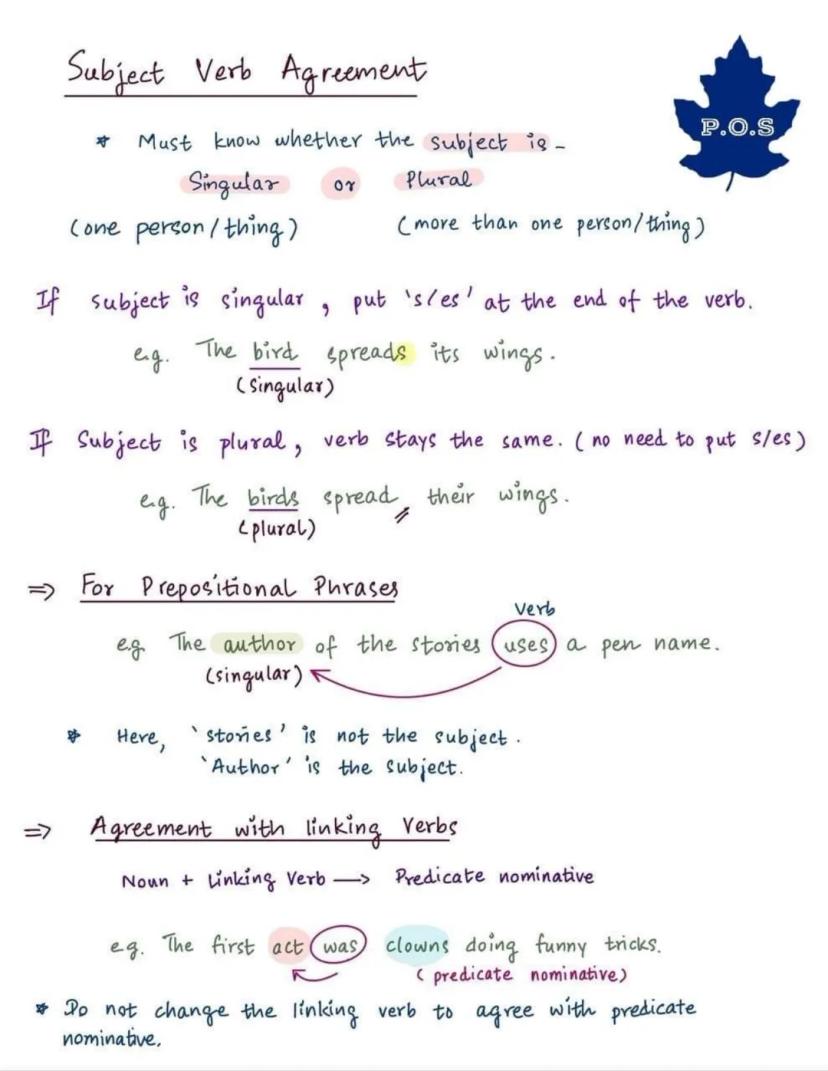 Subject Verb Agreement
P.O.S
* Must know whether the subject is -
Singular or Plural
(one person/thing) (more than one person/thing)
If subject is singular, put 's/es' at the end of the verb.
e.g. The bird spreads its wings.
(singular)
If Subject is plural, verb stays the same. (no need to put s/es)
e.g. The birds spread their wings.
(plural)
⇒ For Prepositional Phrases
Verb
e.g The author of the stories uses a pen name.
(singular)
* Here, 'stories' is not the subject.
'Author' is the subject.
⇒ Agreement with linking Verbs
Noun + Linking Verb → Predicate nominative
e.g. The first act was clowns doing funny tricks.
(predicate nominative)
* Do not change the linking verb to agree with predicate
nominative.